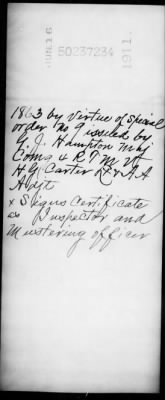 JUN 16
50237234
1911.
1863 by virtue of Special
order No 9 issued by
G. J. Hampton Maj
Comg 4 R T M Vt
H G Carter Lt & A A
Adjt
x Signs Certificate
as Inspector and
Mustering officer